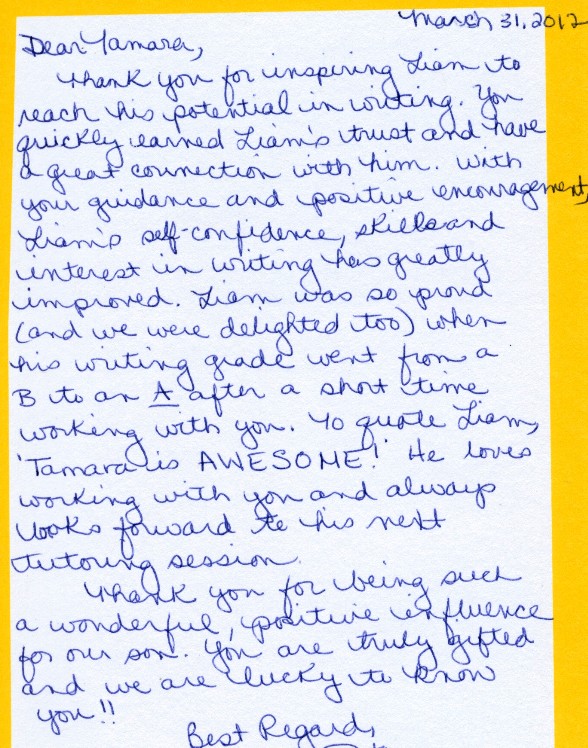 March 31, 2012
Dear Tamara,
Thank you for inspiring Liam to
reach his potential in writing. You
quickly earned Liam's trust and have
a great connection with him. With
your guidance and positive encouragement,
Liam's self-confidence, skills and
interest in writing has greatly
improved. Liam was so proud
(and we were delighted too) when
his writing grade went from a
B to an A after a short time
working with you. To quote Liam,
'Tamara is AWESOME!' He loves
working with you and always
looks forward to his next
tutoring session.
Thank you for being such
a wonderful, positive influence
for our son. You are truly gifted
and we are lucky to know
you!!
Best Regard,